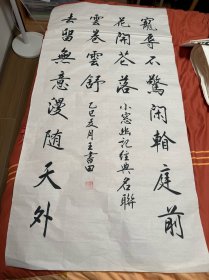 寵辱不驚閑庭前
花開芲落
去留無意漫随天外
雲卷雲舒
小窓幽記經典名聯
乙巳夏月王書田